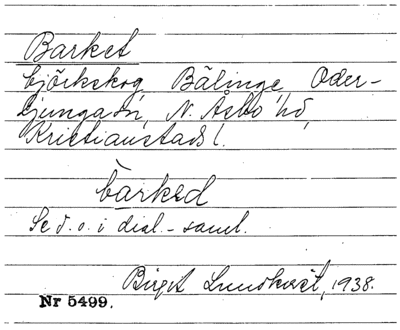 Barket
björkskog, Bälinge, Oder-
ljunga sn, N. Åsbo hd,
Kristianstads l.
barked
Se d. o. i dial.-saml.
Birgit Lundkvist, 1938.
Nr 5499.